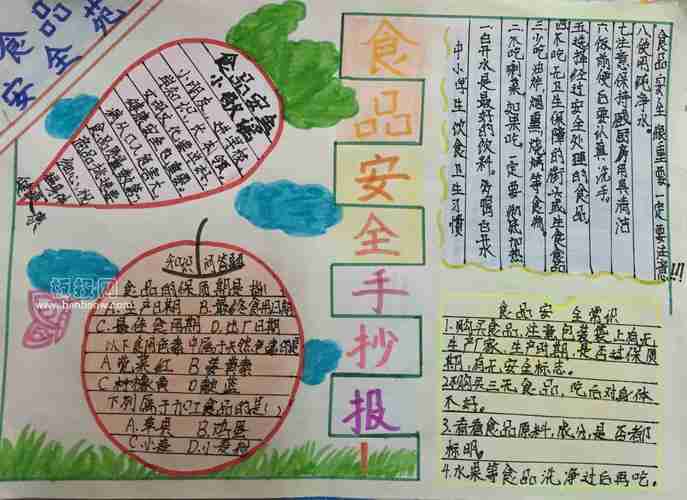 食品
安全苑
食品安全
小歌谣
食品安全手抄报!
中小学生饮食卫生习惯
一白开水是最好的饮料。多喝白开水
二不吃剩菜,如果吃,一定要彻底加热
三少吃油炸、烟熏、烧烤等食物。
四不吃无卫生保障的街头或生食食品
五选择经过安全处理的食品
六饭前便后要认真洗手。
七注意保持厨房用具清洁
八使用纯净水。
食品安全很重要,一定要注意!!!
知识问答题
食品的保质期是指(
A.生产日期 B.最终食用日期
C.最佳食用期 D.出厂日期
以下食用色素中属于天然色素的是
A苋菜红 B.姜黄素
C柠檬黄 D靛蓝
下列属于加工食品的是()
A.苹果 B.鸡蛋
C小麦 D.小麦粉
板报网
www.banbaow.com
食品安全常识
1.购买食品,注意包装袋上有无
生产厂家、生产日期,是否过保质
期,有无安全标志。
2.不购买三无食品,吃后对身体
不好。
3.看看食品原料、成分,是否都
标明。
4.水果等食品洗净过后再吃。